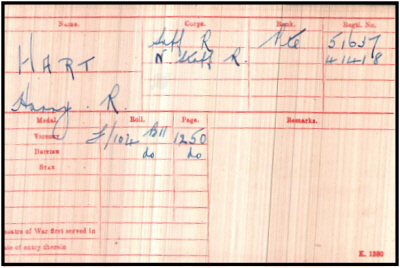 Name. Corps. Rank. Regtl. No.
HART Suff R Pte 51637
N. Staff R. 41418
Harry . R.
Medal. Roll. Page. Remarks.
Victory F/104 B11 1250
British do do
Star
Theatre of War first served in
Date of entry therein
K. 1380